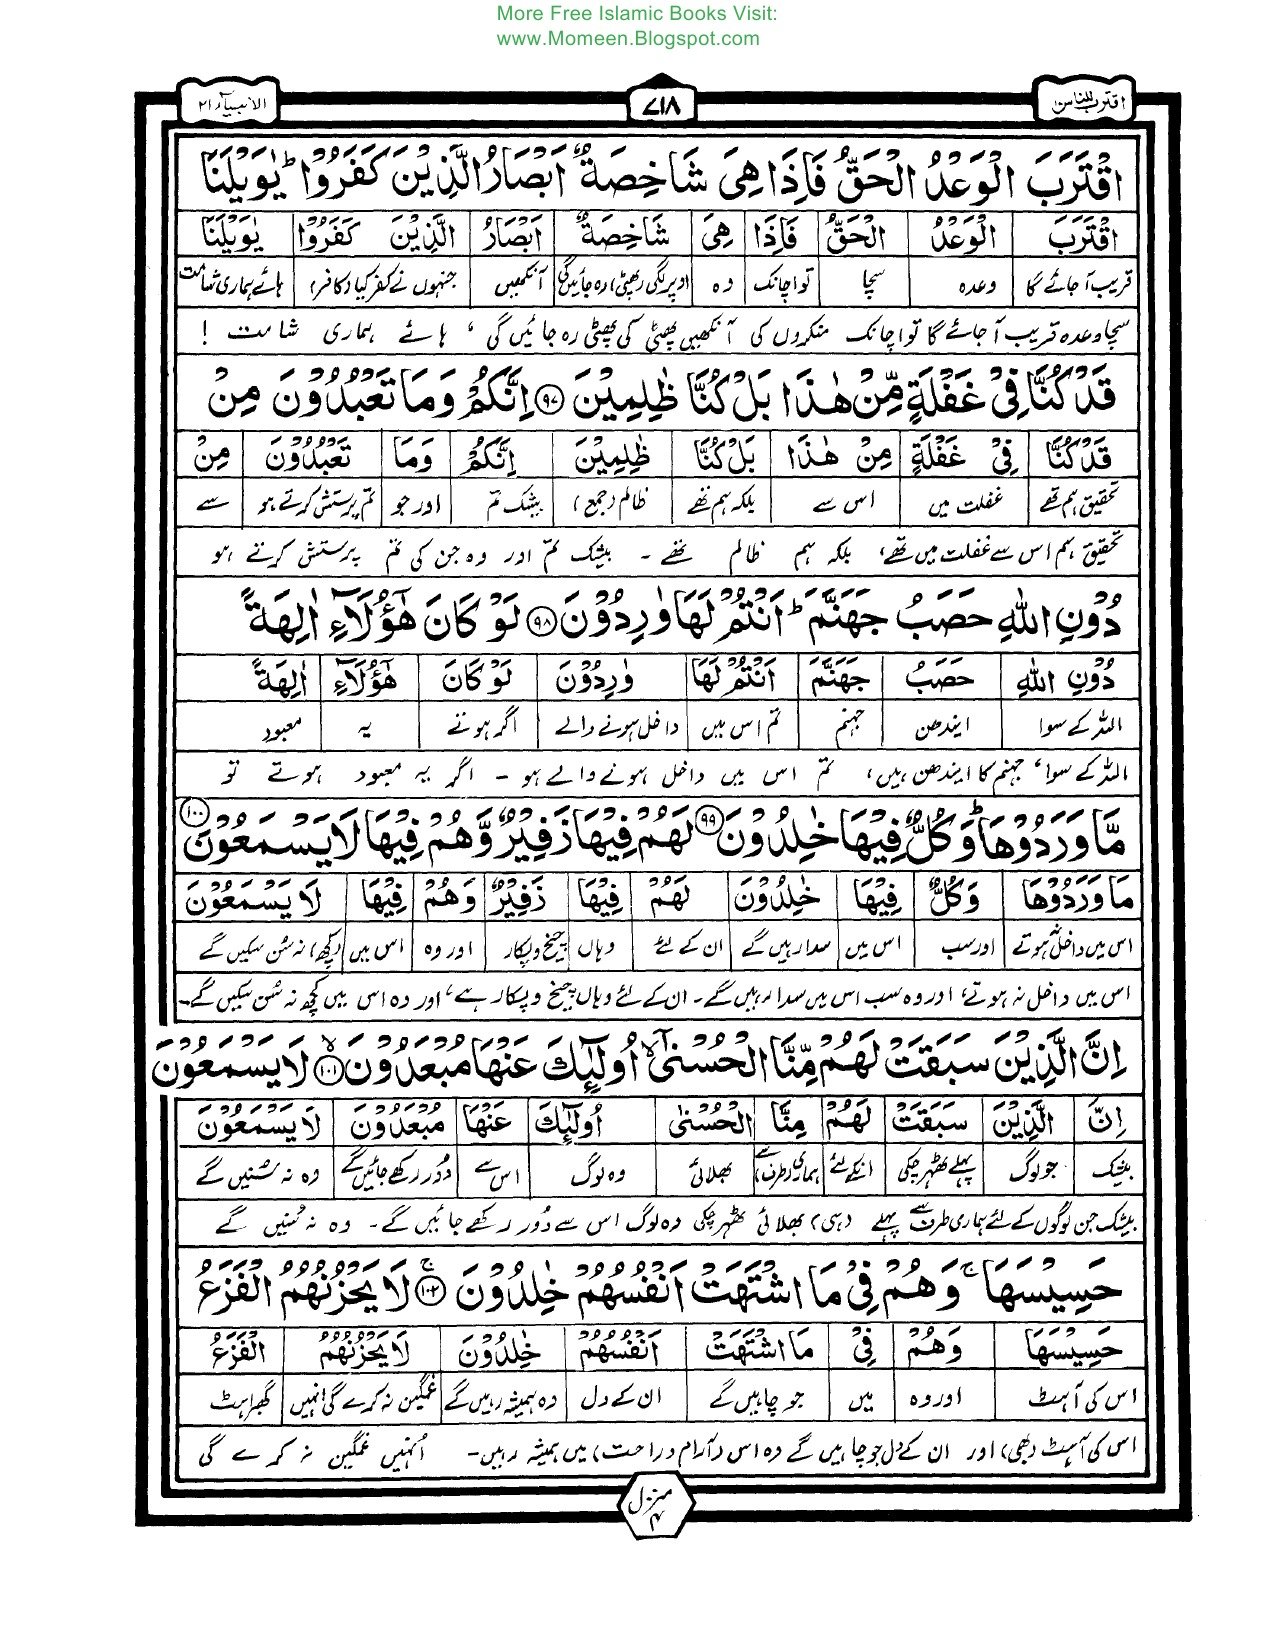 More Free Islamic Books Visit:
www.Momeen.Blogspot.com
اقترب للناس
۷۱۸
الانبیاء ۲۱
اقْتَرَبَ الْوَعْدُ الْحَقُّ فَإِذَا هِىَ شَاخِصَةٌ اَبْصَارُ الَّذِيْنَ كَفَرُوْا ؕ يٰوَيْلَنَا
اقْتَرَبَ الْوَعْدُ الْحَقُّ فَإِذَا هِىَ شَاخِصَةٌ اَبْصَارُ الَّذِيْنَ كَفَرُوْا يٰوَيْلَنَا
قریب آجائے گا وعدہ سچا تو اچانک وہ اوپر لگی (پھٹی) رہ جائیں گی آنکھیں جنہوں نے کفر کیا (کافر) ہائے ہماری شامت
سچا وعدہ قریب آ جائے گا تو اچانک منکروں کی آنکھیں پھٹی کی پھٹی رہ جائیں گی ، ہائے ہماری شامت !
قَدْ كُنَّا فِىْ غَفْلَةٍ مِّنْ هٰذَا بَلْ كُنَّا ظٰلِمِيْنَ ۹۷ اِنَّكُمْ وَمَا تَعْبُدُوْنَ مِنْ
قَدْ كُنَّا فِىْ غَفْلَةٍ مِنْ هٰذَا بَلْ كُنَّا ظٰلِمِيْنَ اِنَّكُمْ وَمَا تَعْبُدُوْنَ مِنْ
تحقیق ہم تھے غفلت میں اس سے بلکہ ہم تھے ظالم (جمع) بیشک تم اور جو تم پرستش کرتے ہو سے
تحقیق ہم اس سے غفلت میں تھے، بلکہ ہم ظالم تھے ۔ بیشک تم اور وہ جن کی تم پرستش کرتے ہو
دُوْنِ اللّٰهِ حَصَبُ جَهَنَّمَ ؕ اَنْتُمْ لَهَا وٰرِدُوْنَ ۹۸ لَوْ كَانَ هٰٓؤُلَآءِ اٰلِهَةً
دُوْنِ اللّٰهِ حَصَبُ جَهَنَّمَ اَنْتُمْ لَهَا وٰرِدُوْنَ لَوْ كَانَ هٰٓؤُلَآءِ اٰلِهَةً
اللہ کے سوا ایندھن جہنم تم اس میں داخل ہونے والے اگر ہوتے یہ معبود
اللہ کے سوا، جہنم کا ایندھن ہیں، تم اس میں داخل ہونے والے ہو ۔ اگر یہ معبود ہوتے تو
مَّا وَرَدُوْهَا ؕ وَكُلٌّ فِيْهَا خٰلِدُوْنَ ۹۹ لَهُمْ فِيْهَا زَفِيْرٌ وَّهُمْ فِيْهَا لَا يَسْمَعُوْنَ ۱۰۰
مَا وَرَدُوْهَا وَكُلٌّ فِيْهَا خٰلِدُوْنَ لَهُمْ فِيْهَا زَفِيْرٌ وَهُمْ فِيْهَا لَا يَسْمَعُوْنَ
اس میں داخل نہ ہوتے اور سب اس میں سدا رہیں گے ان کے لئے وہاں چیخ و پکار اور وہ اس میں (کچھ) نہ سن سکیں گے
اس میں داخل نہ ہوتے، اور وہ سب اس میں سدا رہیں گے۔ ان کے لئے وہاں چیخ و پکار ہے، اور وہ اس میں کچھ نہ سن سکیں گے۔
اِنَّ الَّذِيْنَ سَبَقَتْ لَهُمْ مِّنَّا الْحُسْنٰٓى ۙ اُولٰٓئِكَ عَنْهَا مُبْعَدُوْنَ ۱۰۱ ۙ لَا يَسْمَعُوْنَ
اِنَّ الَّذِيْنَ سَبَقَتْ لَهُمْ مِنَّا الْحُسْنٰى اُولٰٓئِكَ عَنْهَا مُبْعَدُوْنَ لَا يَسْمَعُوْنَ
بیشک جو لوگ پہلے ٹھہر چکی انکے لئے ہماری (طرف) سے بھلائی وہ لوگ اس سے دُور رکھے جائیں گے وہ نہ سنیں گے
بیشک جن لوگوں کے لئے ہماری طرف سے پہلے (ہی) بھلائی ٹھہر چکی وہ لوگ اس سے دُور رکھے جائیں گے۔ وہ نہ سُنیں گے
حَسِيْسَهَا ۚ وَهُمْ فِىْ مَا اشْتَهَتْ اَنْفُسُهُمْ خٰلِدُوْنَ ۱۰۲ ۚ لَا يَحْزُنُهُمُ الْفَزَعُ
حَسِيْسَهَا وَهُمْ فِىْ مَا اشْتَهَتْ اَنْفُسُهُمْ خٰلِدُوْنَ لَا يَحْزُنُهُمُ الْفَزَعُ
اس کی آہٹ اور وہ میں جو چاہیں گے ان کے دل وہ ہمیشہ رہیں گے غمگین نہ کرے گی انہیں گھبراہٹ
اس کی آہٹ (بھی) اور ان کے دل جو چاہیں گے وہ اس (آرام و راحت) میں ہمیشہ رہیں۔ اُنہیں غمگین نہ کرے گی
منزل ۴